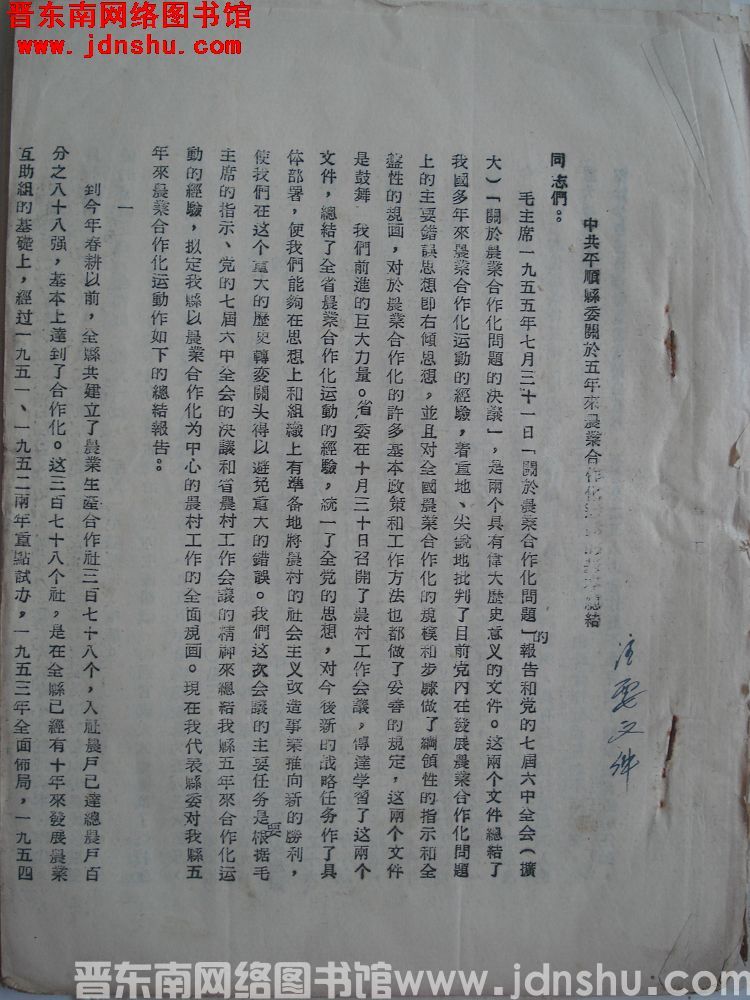 晋东南网络图书馆
www.jdnshu.com
中共平順縣委關於五年來農業合作化總結
同志們。
毛主席一九五五年七月三十一日「關於農業合作化問題」的報告和党的七屆六中全会（擴
大）「關於農業合作化問題的决議」，是兩个具有偉大歷史意义的文件。这兩个文件總結了
我國多年來農業合作化运動的經驗，着重地、尖銳地批判了目前党內在發展農業合作化問題
上的主要錯誤思想即右傾思想，並且对全國農業合作化的規模和步驟做了綱領性的指示和全
盤性的規画，对於農業合作化的許多基本政策和工作方法也都做了妥善的規定，这兩个文件
是鼓舞我們前進的巨大力量。省委在十月三十日召開了農村工作会議，傳達学習了这兩个
文件，總結了全省農業合作化运動的經驗，統一了全党的思想，对今後新的战略任务作了具
体部署，使我們能夠在思想上和組織上有準备地將農村的社会主义改造事業推向新的勝利，
使我們在这个重大的歷史轉変關头得以避免重大的錯誤。我們这次会議的主要任务是要根据毛
主席的指示、党的七屆六中全会的决議和省農村工作会議的精神來總結我縣五年來合作化运
動的經驗，拟定我縣以農業合作化为中心的農村工作的全面規画。現在我代表縣委对我縣五
年來農業合作化运動作如下的總結報告。
一
到今年春耕以前，全縣共建立了農業生產合作社三百七十八个，入社農戶已達總農戶百
分之八十八强，基本上達到了合作化。这三百七十八个社，是在全縣已經有十年來發展農業
互助組的基礎上，經过一九五一、一九五二兩年重點試办，一九五三年全面佈局，一九五四
注要文件
晋东南网络图书馆www.jdnshu.com